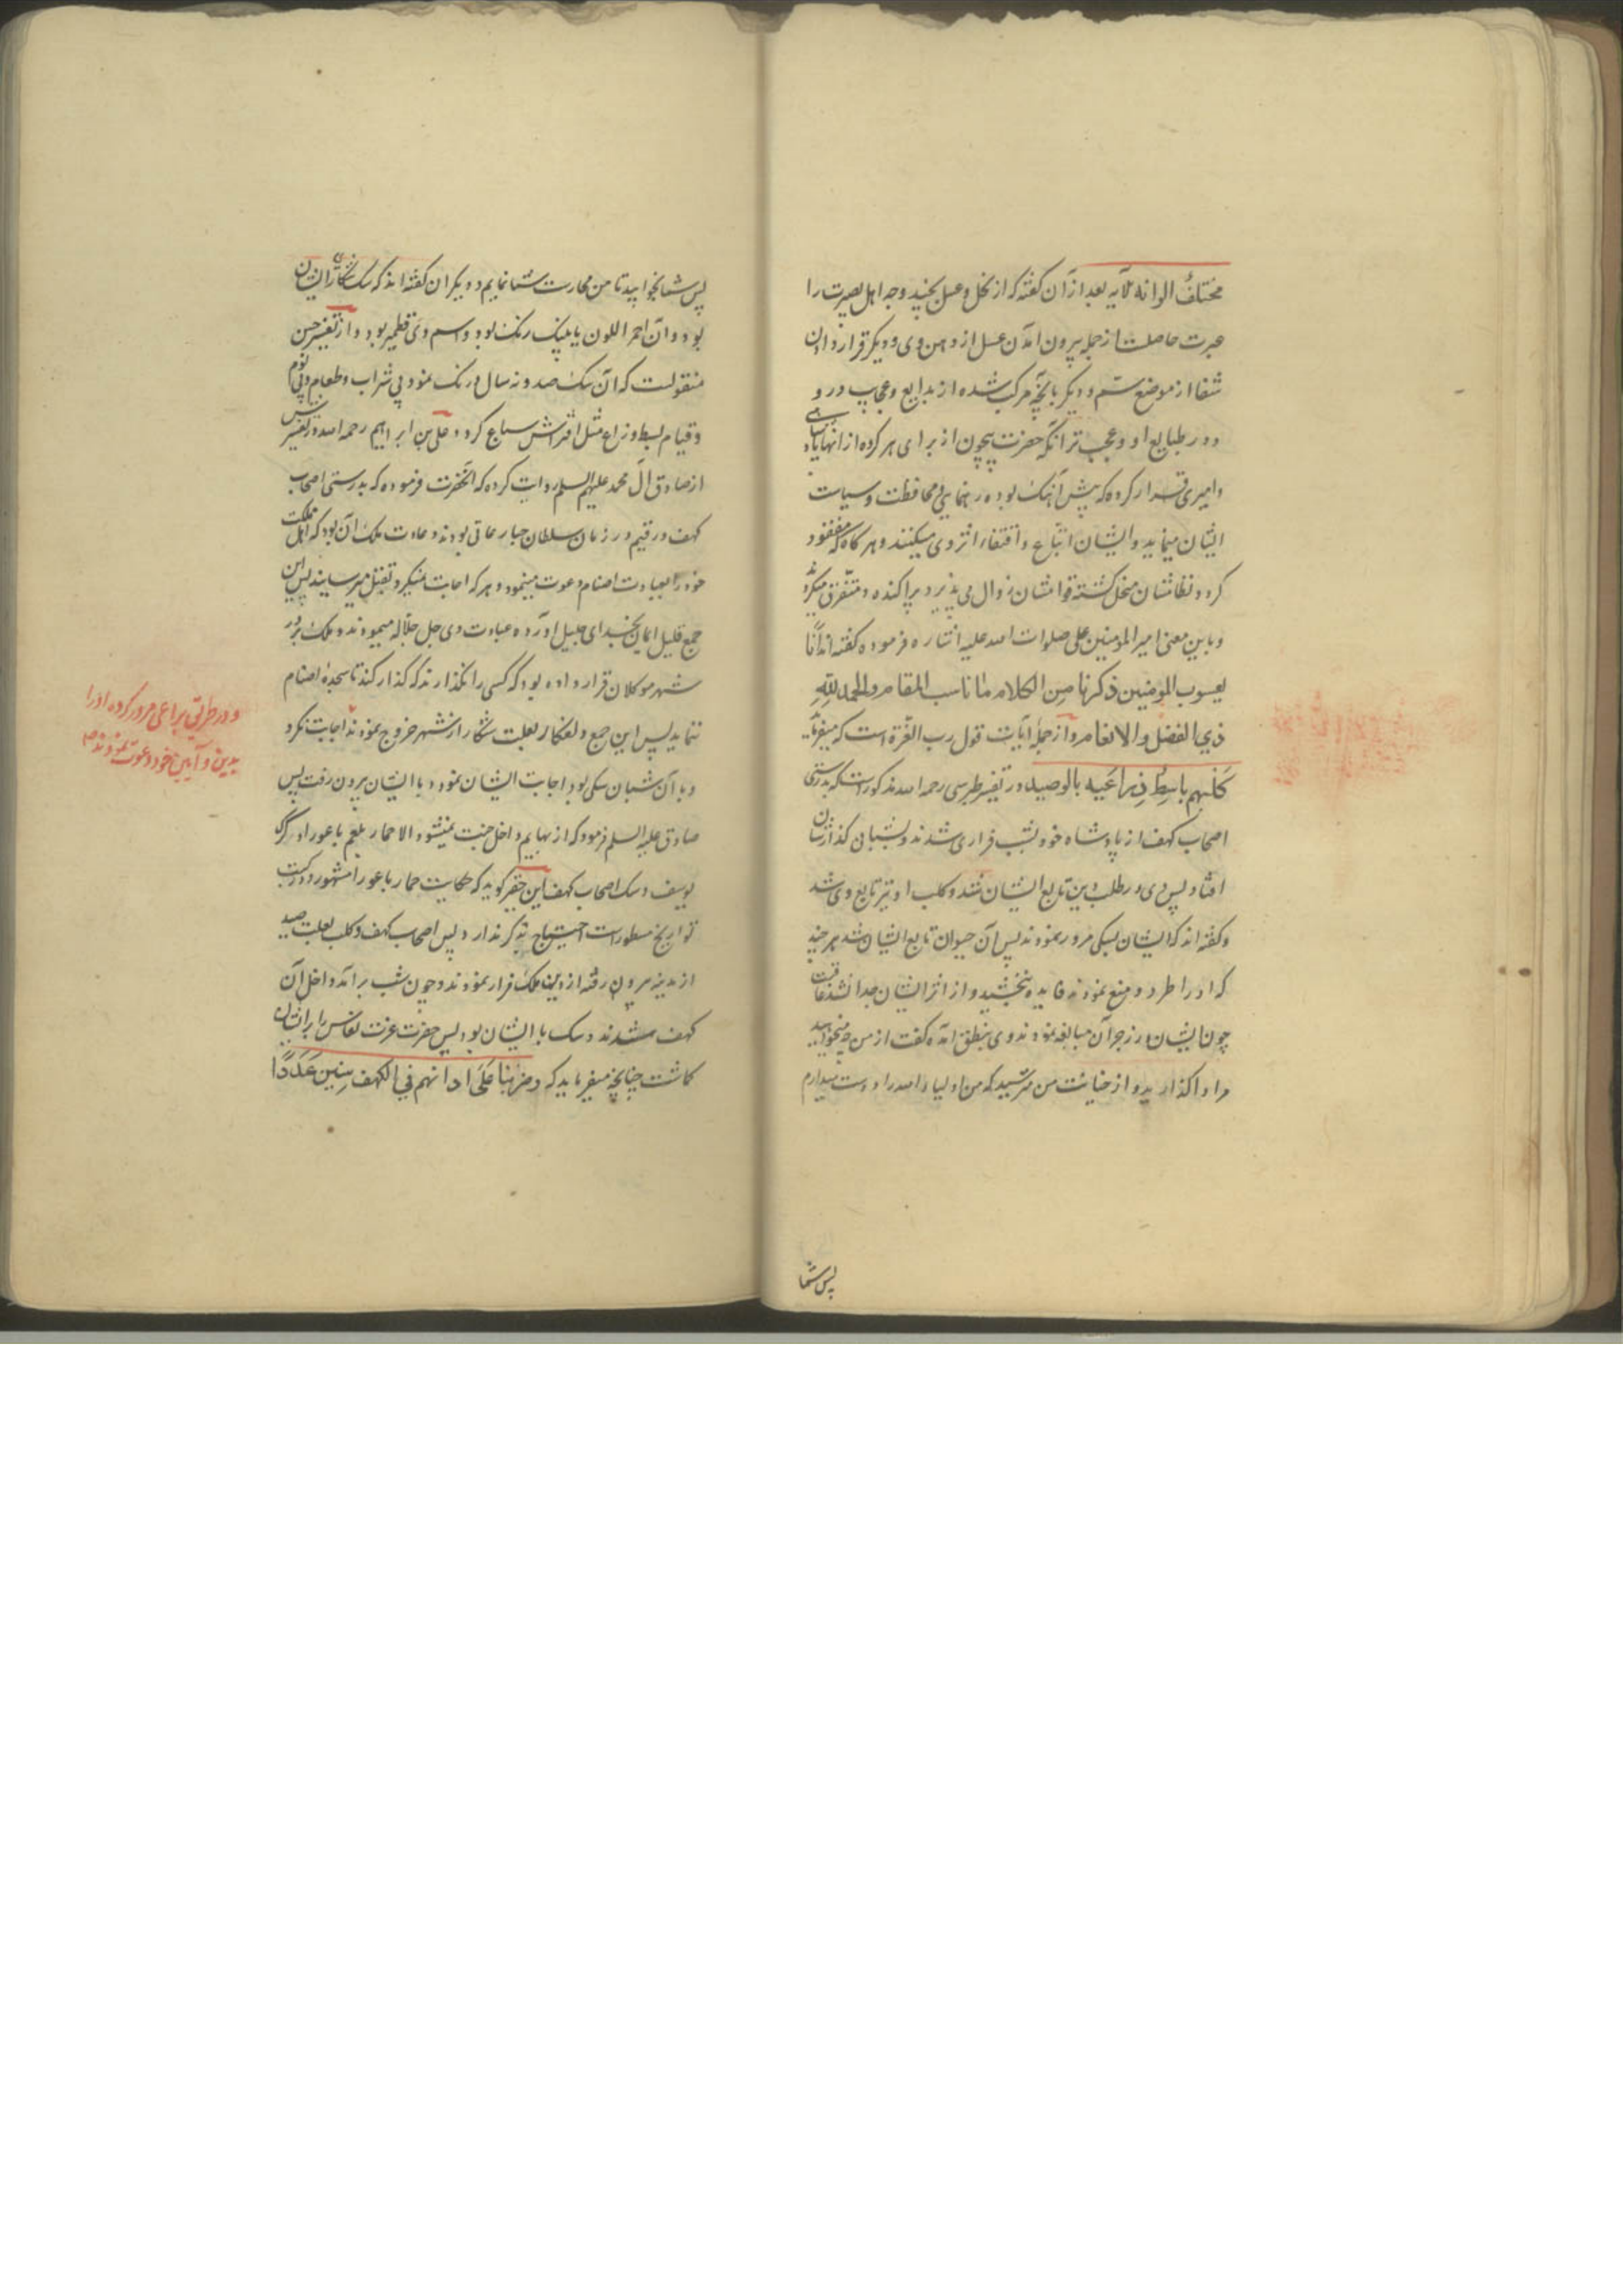 مختلف الوانه الآیه بعد از آن گفته که از نحل و عسل بچند وجه اهل بصیرت را
عبرت حاصلست از جمله بیرون آمدن عسل از دهن وی و دیگر قرار دادن
شفا از موضع سم و دیگر بآنچه مرکب شده از بدایع و عجایب در و
و در طبایع او و عجب تر آنکه حضرت بیچون از برای هر کرده از آنها پادشاهی
و امیری قرار کرده که پیش آهنک بوده رهنمایی و محافظت و سیاست
ایشان مینماید و ایشان اتباع و اقتفاء اثر وی میکنند و هر کاه که مفقود
کردد نظامشان منحل کشته قوامشان زوال می پذیرد و پراکنده و متفرق میکردند
و باین معنی امیر المومنین علی صلوات الله علیه اشاره فرموده گفته اند انا
یعسوب المومنین ذکرنا من الکلام ما ناسب المقام والحمد لله
ذي الفضل والانعام و از جمله آیات قول رب العزة است که میفرماید
کلبهم باسط ذراعیه بالوصید در تفسیر طبرسی رحمه الله مذکور است که بدرستی
اصحاب کهف از پادشاه خود بشب فراری شدند و بشبان گذارشان
افتاد پس وی در طلب دین تابع ایشان شد و کلب او نیز تابع وی شد
و گفته اند که ایشان بسکی مرور نمودند پس آن حیوان تابع ایشان شد هر چند
که او را طرد و منع نمودند فایده نبخشید و از اثر ایشان جدا نشد عاقبت
چون ایشان در زجر آن مبالغه نمودند وی بنطق آمده گفت از من چه میخواهید
مرا واگذارید و از خیانت من مترسید که من اولیاء الله را دوست میدارم
پس شما
پس شما بخوابید تا من حارست شما نمایم و دیگران گفته اند که سک شکاری ایشان
بود و آن احمر اللون یا پلنک رنک بود و اسم وی قطمیر بود و از تفسیر حسن
منقولست که آن سک صد و نه سال درنک نمود بی شراب و طعام و بی نوم
و قیام بسط ذراع مثل افتراش سباع کرد و علی بن ابراهیم رحمه الله در تفسیرش
از صادق آل محمد علیهم السلم روایت کرده که آنحضرت فرموده که بدرستی اصحاب
کهف و رقیم در زمان سلطان جبار عاتی بودند و عادت ملک آن بود که اهل مملکت
خود را بعبادت اصنام دعوت مینمود و هر که اجابت نمیکرد بقتل میرسانید پس این
جمع قلیل ایمان بخدای جلیل آورده عبادت وی جل جلاله مینمودند و ملک بر در
شهر موکلان قرار داده بود که کسی را نگذارند که گذار کند تا سجده اصنام
ننماید پس این جمع ولفکار بعلت شکار از شهر خروج نمودند اجابت نکرد
و با آن شبان سکی بود اجابت ایشان نمود و با ایشان بیرون رفت پس
صادق علیه السلم فرمود که از بهایم داخل جنت نمیشود الا حمار بلعم باعورا و گرگ
یوسف و سک اصحاب کهف این حقیر گوید که حکایت حمار باعورا مشهور و در کتب
تواریخ مسطورات احتیاج بذکر ندارد پس اصحاب کهف و کلب بعلت صید
از مدینه بیرون رفته از دین ملک فرار نمودند و چون شب برآمد داخل آن
کهف شدند و سک با ایشان بود پس حضرت عزت نعاس را بر ایشان
گماشت چنانچه میفرماید که و ضربنا علی اذانهم في الکهف سنین عددا
و در طریق براعی مرور کرده او را
بدین و آیین خود دعوت نمودند صح